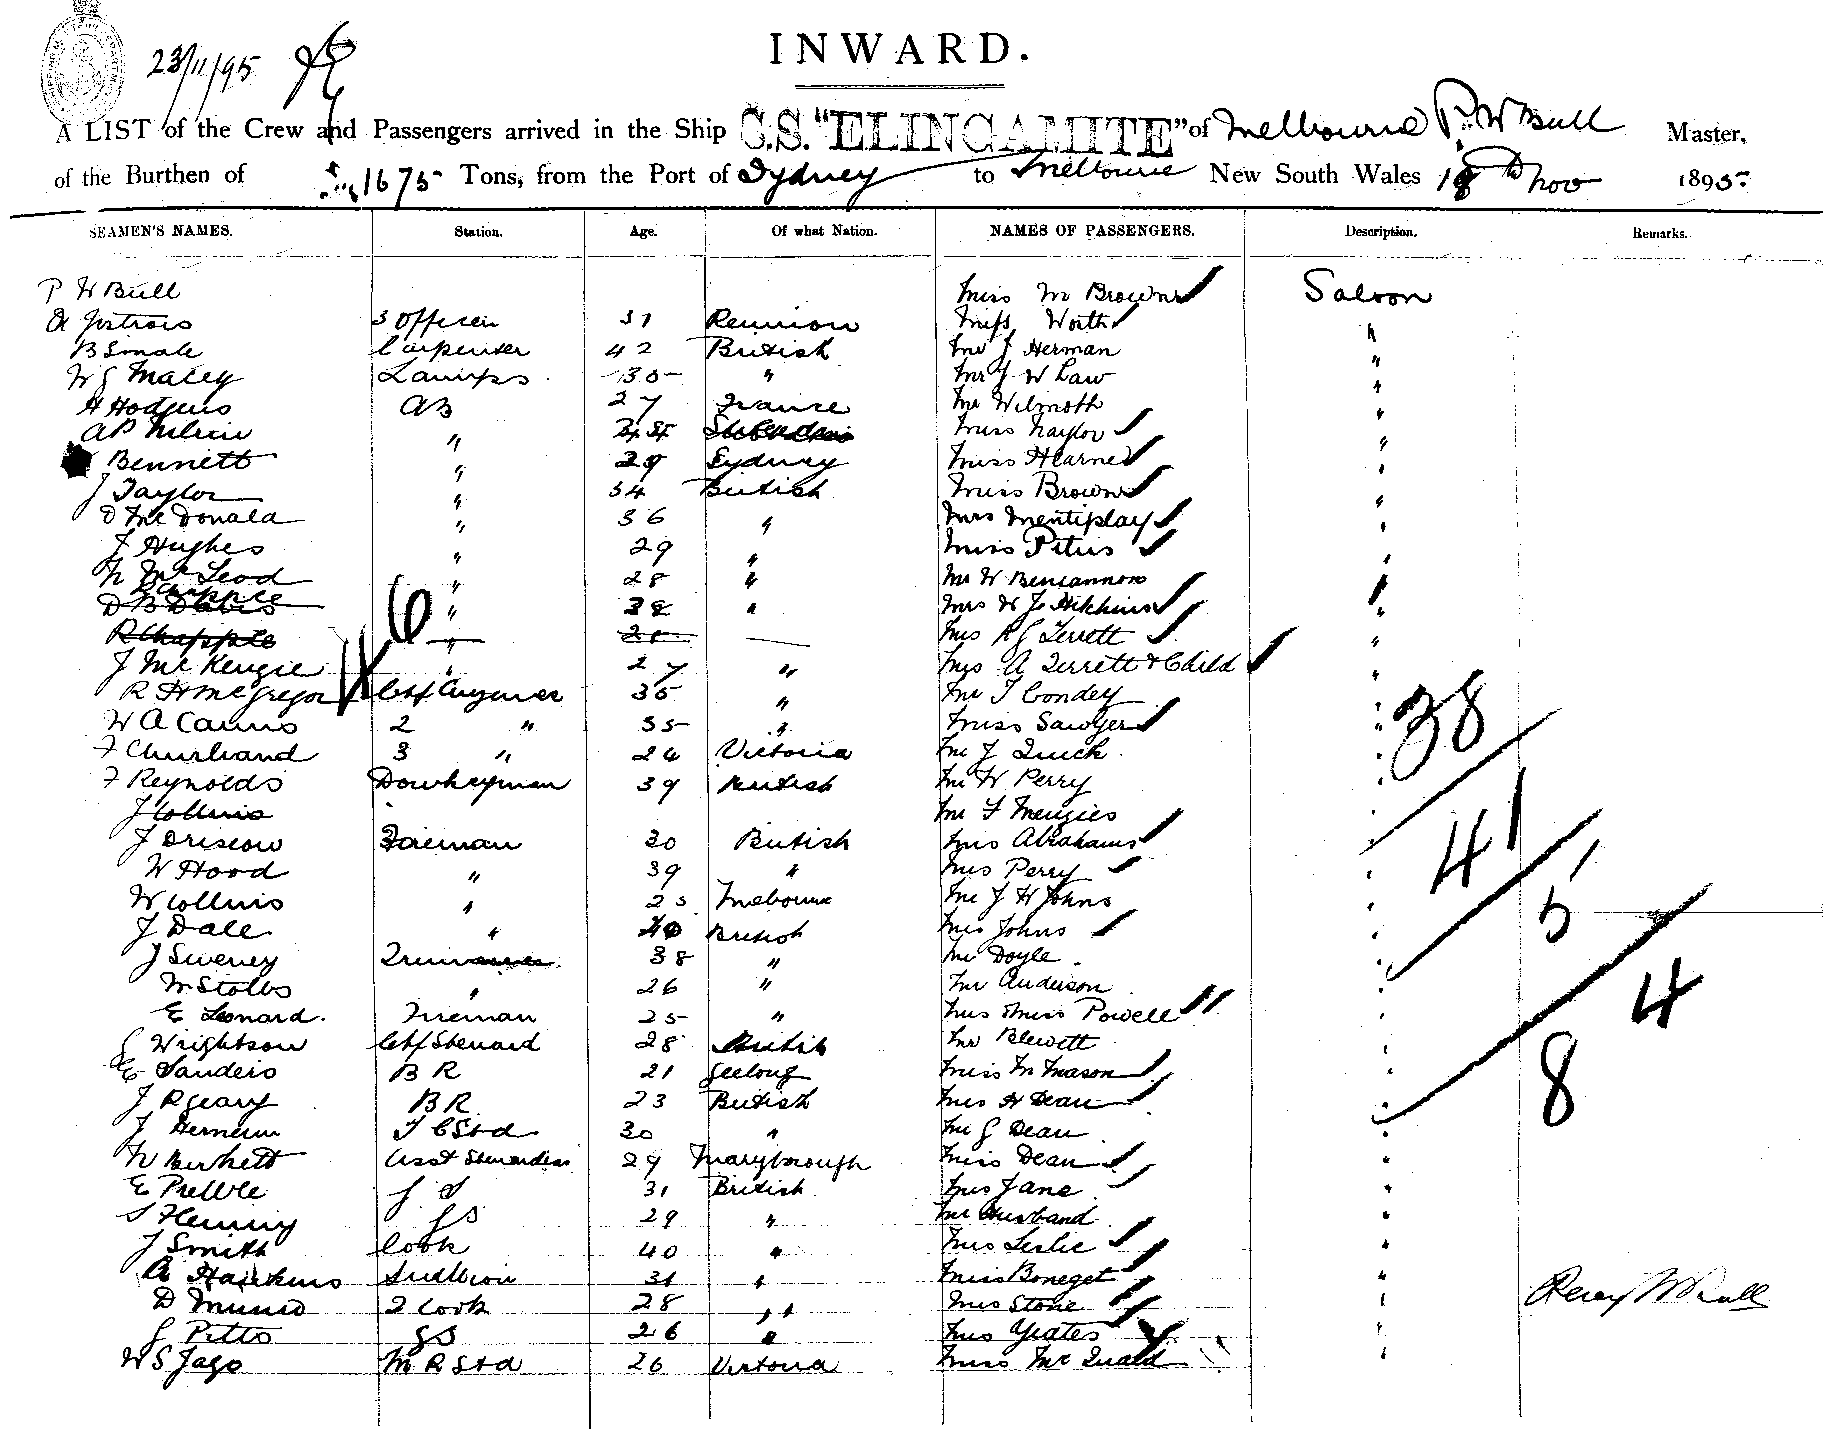 23/11/95
INWARD.
A LIST of the Crew and Passengers arrived in the Ship S.S. "ELINGAMITE" of Melbourne P. W Bull Master,
of the Burthen of 1675 Tons, from the Port of Sydney to Melbourne New South Wales 18th Nov 1895
SEAMEN'S NAMES. Station. Age. Of what Nation. NAMES OF PASSENGERS. Description. Remarks.
P W Bull Miss M Brown Saloon
3 Officer 31 Reunion Miss Worth "
B Smale Carpenter 42 British Mr J Herman "
W G Maley Lamps 30 " Mr J W Law "
H Hodgens AB 27 France Mr Wilmoth "
AP " Miss Naylor "
Bennett " 29 Sydney Miss Hearne "
J Taylor " 34 British Miss Brown "
D McDonald " 36 " Mrs Mentiplay "
J Hughes " 29 " Miss Pitus "
N McLeod " 28 " Mr W Bencannon "
R Chapple
D B Davis " 38 " Mrs W J Hitchins "
R Chapple " 28 Mrs R G Terrett "
J McKenzie " 27 " Mrs A Terrett & Child "
R H McGregor Chf Engineer 35 " Mr T Condey "
W A Cairns 2 " 35 " Miss Sawyer "
F 3 " 24 Victoria Mr J Quick "
F Reynolds Donkeyman 39 British Mr W Perry "
J Collins Mr F Menzies "
J Driscoll Fireman 30 British Mrs Abrahams "
W Hood " 39 " Mrs Perry "
W Collins " 23 Melbourne Mr J H Johns "
J Dale " 40 British Mrs Johns "
J Sweney 38 " Mr Doyle "
M Stobbs " 26 " Mr Anderson "
E Leonard. Fireman 25 " Mrs & Miss Powell "
G Wrightson Chf Steward 28 British Mr Blewett "
E Sanders B R 21 Geelong Miss M Mason "
J R Geary B R 23 British Mrs H Dean "
J F C Std 30 " Mr G Dean "
N Birkett Asst Stewardess 29 Maryborough Miss Dean "
E Prebble 31 British Mrs Jane "
S Fleming GS 29 " Mr Husband "
J Smith Cook 40 " Mrs Leslie "
A Hawkins Scullion 31 " Miss Boneget "
D Munro 2 Cook 28 " Mrs Stone "
G Pitts GS 26 " Mrs Yeates "
W S Jago M R Std 26 Victoria Miss McQuaid "
6
38
41
5
4
8
Percy W Bull